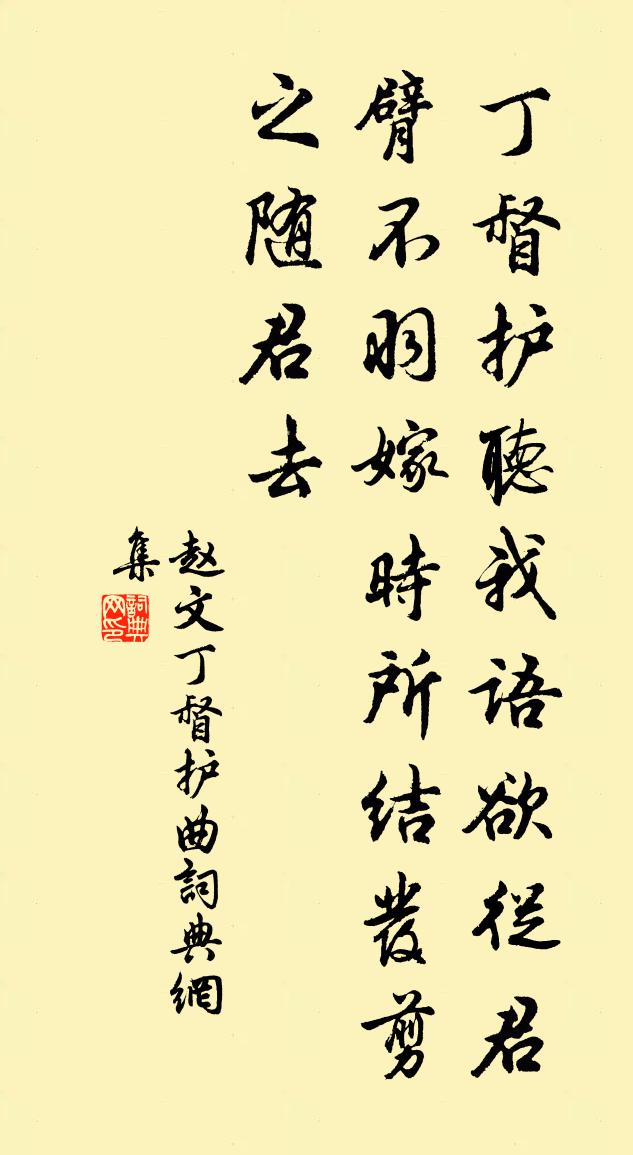 丁督护聽我語欲從君
臂不羽嫁時所结發剪
之随君去
赵文丁督护曲詞典網
集
詞典网印